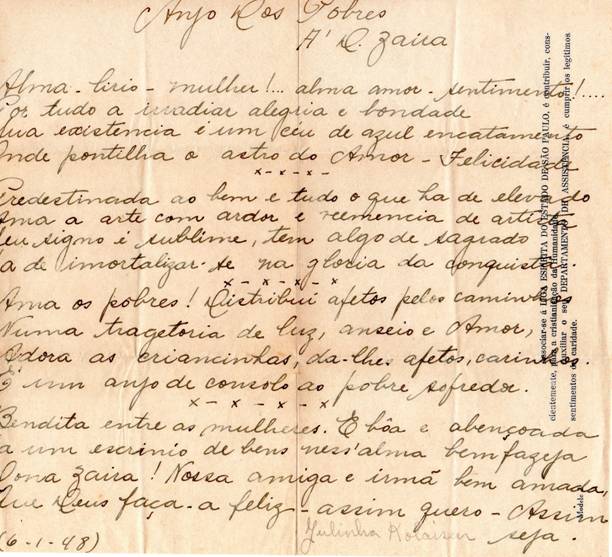 Anjo Dos Pobres
A' D. Zaira
Alma - lirio - mulher!... alma amor - sentimento!....
Por tudo a irradiar alegria e bondade
Sua existencia é um céu de azul encatamento
Onde pontilha o astro do Amor - Felicidade
x - x - x - x
Predestinada ao bem e tudo o que ha de elevado
Ama a arte com ardor e veemencia de artista
Seu signo é sublime, tem algo de sagrado
a de imortalizar-se na gloria da conquista
x - x - x - x - x
Ama os pobres! Distribui afetos pelos caminhos
Numa tragetoria de luz, anseio e Amor,
Adora as criancinhas, da-lhe afetos, carinhos.
É um anjo de consolo ao pobre sofredor.
x - x - x - x
Bendita entre as mulheres. E bôa e abençoada
a um escrinio de bens ness'alma bemfazeja
Dona Zaira! Nossa amiga e irmã bem amada,
Que Deus faça-a feliz - assim quero - Assim
seja.
Julinha
(6-1-48)
associar-se á LIGA ESPIRITA DO ESTADO DE SÃO PAULO, é contribuir, cons-
cientemente, para a cristianização da Humanidade.
auxiliar o seu DEPARTAMENTO DE ASSISTENCIA é cumprir os legitimos
sentimentos de caridade.
Modelo